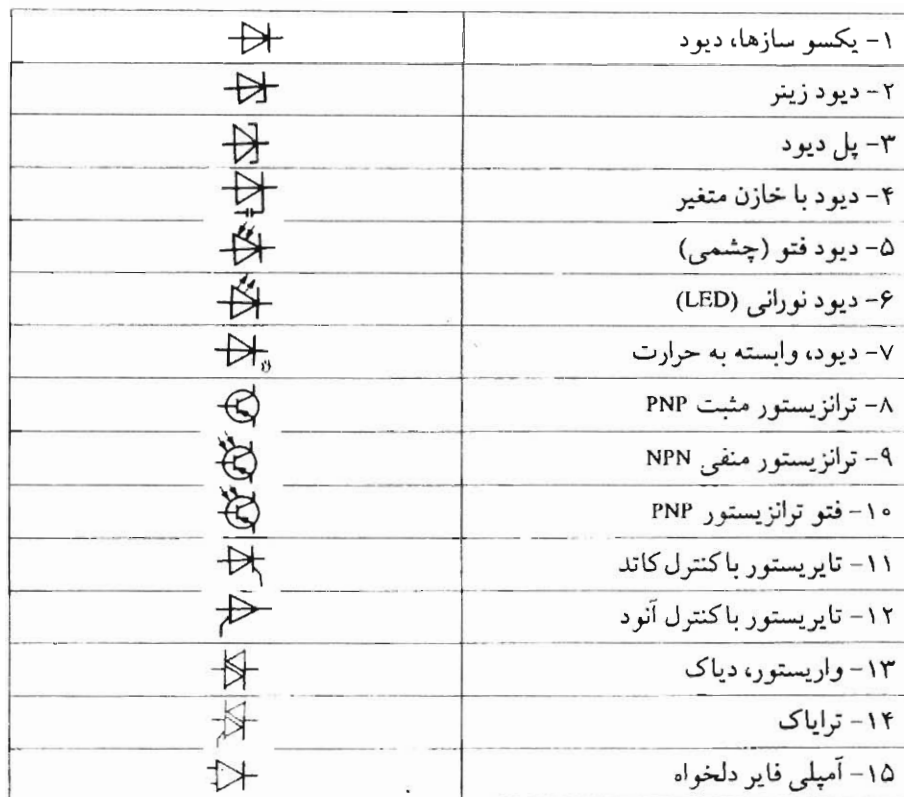 ۱- یکسو سازها، دیود
۲- دیود زینر
۳- پل دیود
۴- دیود با خازن متغیر
۵- دیود فتو (چشمی)
۶- دیود نورانی (LED)
۷- دیود، وابسته به حرارت
۸- ترانزیستور مثبت PNP
۹- ترانزیستور منفی NPN
۱۰- فتو ترانزیستور PNP
۱۱- تایریستور با کنترل کاتد
۱۲- تایریستور با کنترل آنود
۱۳- واریستور، دیاک
۱۴- ترایاک
۱۵- آمپلی فایر دلخواه